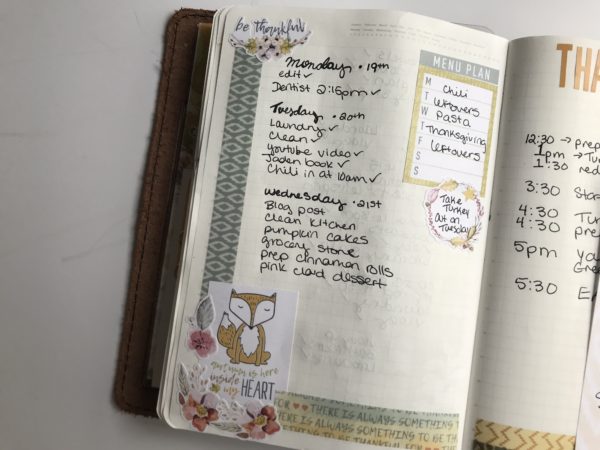 be thankful
Monday • 19th
edit ✓
Dentist 2:15pm ✓
Tuesday • 20th
Laundry ✓
clean ✓
youtube video ✓
Jaden book ✓
Chili in at 10am ✓
Wednesday • 21st
Blog post
clean kitchen
pumpkin cakes
grocery store
prep cinnamon rolls
pink cloud dessert
MENU PLAN
M Chili
T leftovers
W Pasta
T Thanksgiving
F leftovers
S
S
Take
Turkey
out on
Tuesday
is here
inside
my HEART
THERE IS ALWAYS SOMETHING TO BE
FOR ♥♥ THERE IS ALWAYS SOMETHING
THERE IS ALWAYS SOMETHING TO BE
THING TO BE THANKFUL FOR ♥♥ THERE
THA
12:30 → prep
1pm →
1:30
3:30
4:30
4:30
5pm
5:30